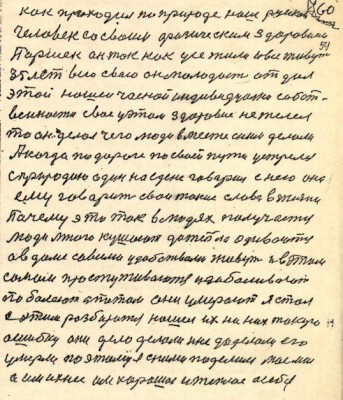 как проходил по природе наш русской 60
человек со своим физическим здоровием 59
Паршек он ток как уже жили и все живут
35 лет всего своего он молодост отдал
этой нашей часной индивидуално собст-
вености свое в этом здоровие не жалел
то он делал чего люди вместе с ним делали
А когда по дороге по свой пути встрелся
с природою один на едине говорил с нею она
ему говорит свои такие слова в жизни
Почему это ток в людях получается
люди много кушают до тепла одеваются
а в доме со всеми удобствами живут и в этом
самом простуживаются и заболивают
поболеют а потом они умирают я стал
с этим розбиратся нашел их на них такую
ошибку они дело делали и не доделали его
умерли поэтому я с ними поделим маеми
а им ихнее им хорошая и теплое а себя